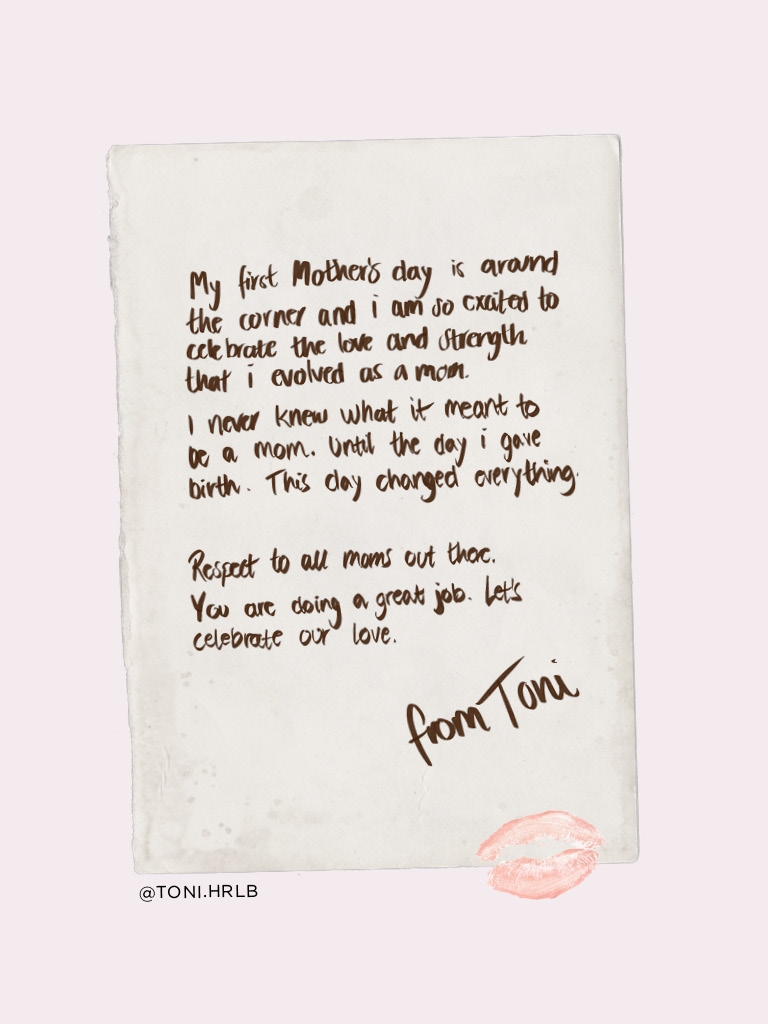 My first Mother's day is around
the corner and i am so excited to
celebrate the love and strength
that i evolved as a mom.
I never knew what it meant to
be a mom. Until the day i gave
birth. This day changed everything.
Respect to all moms out there.
You are doing a great job. Let's
celebrate our love.
from Toni
@TONI.HRLB